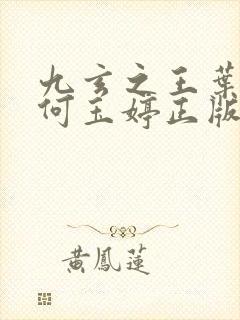 九玄之王葉
何玉婷正版
黃鳳蓮